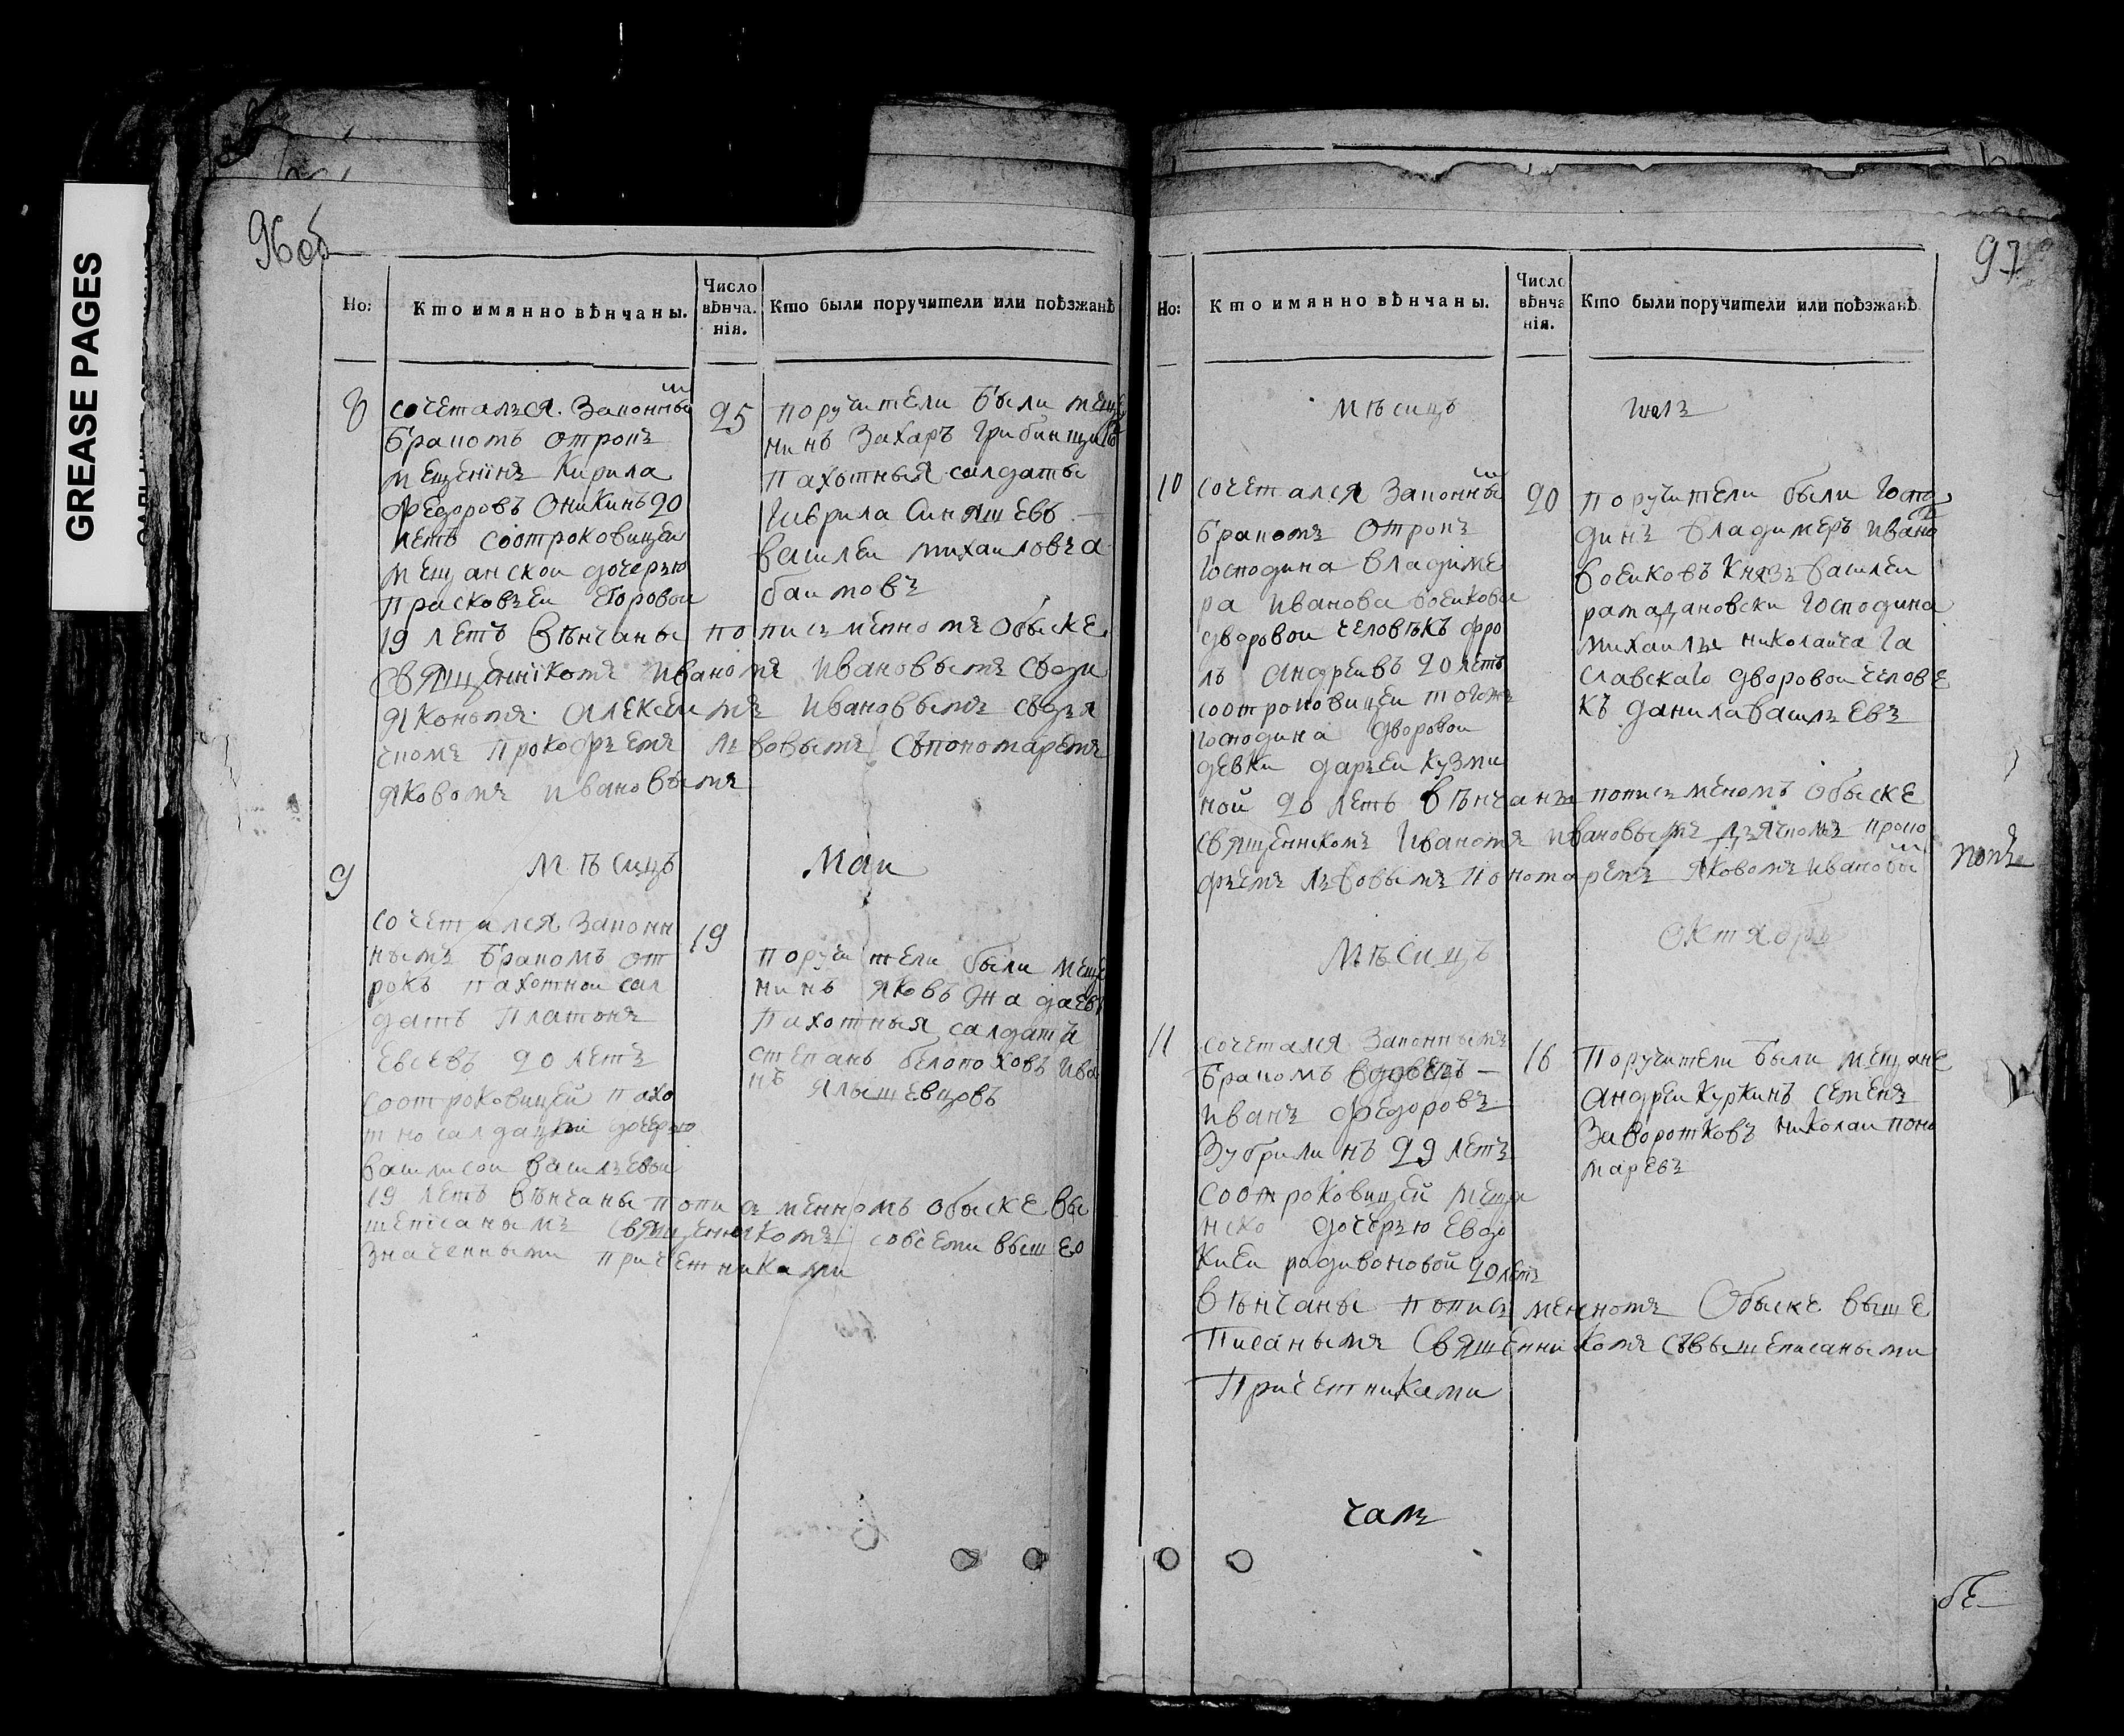 GREASE PAGES
96об
Но:
Кто имянно вѣнчаны.
Число вѣнча. нія.
Кто были поручители или поѣзжанѣ
8
сочетался Законны
бракомъ отрокъ
мещенінъ Кирила
Федоровъ Оникинъ 20
летъ соотроковицеи
мещанскои дочерью
Прасковьеи Егоровои
19 летъ вѣнчаны по письменномъ обыске
священнікомъ Иваномъ Ивановымъ
Алексеимъ Ивановымъ
Прокофьемъ Львовымъ съпономаремъ
Яковомъ Ивановымъ
25
поручители были меще
нинъ Захаръ
пахотныя салдаты
Гаврила Синяшевъ
василеи михаиловъ
9
Мѣсицъ
Маи
сочетался Законн
нымъ бракомъ от
рокъ пахотнои сал
датъ Платонъ
Евсевъ 20 летъ
соотроковицеи пахо
тно салдацкои дочерью
васильевои
19 летъ вѣнчаны по письменномъ обыске вы
шеписанымъ священникомъ совсеми вышео
значенными причетниками
19
поручители были меще
нинъ Яковъ
Пахотныя салдаты
степанъ Белопоховъ Ива
нъ
97
Но:
Кто имянно вѣнчаны.
Число вѣнча нія.
Кто были поручители или поѣзжанѣ.
Мѣсицъ
10
сочетался Законны
бракомъ отрокъ
господина владиме
ра Иванова воеикова
дворовои человѣкъ фро
лъ Андреивъ 20 летъ
соотроковицеи тогожъ
господина дворовои
девки дарьеи Кузми
ной 20 летъ вѣнчанъ по письменомъ обыске
священикомъ Иваномъ Ивановымъ дьячкомъ проко
фьемъ Львовымъ Пономаремъ Яковомъ Ивановы
20
поручители были Госпо
динъ владимеръ Ивано
воеиковъ Князь василеи
рамадановски Господина
михаилы николаича Га
славскаго дворовои челове
къ данила васильевъ
Мѣсицъ
Октябрь
11
сочетался Законнымъ
бракомъ вдовецъ
Иванъ Федоровъ
Зубрилинъ 29 летъ
соотроковицей меща
нско дочерью Евдо
Киеи радивоновой 20 летъ
вѣнчаны по письменномъ Обыске выше
Писанымъ Священникомъ съвышеписаными
Причетниками
16
Поручители были мещане
Андреи Куркинъ Семенъ
Заворотковъ николаи поно
маревъ